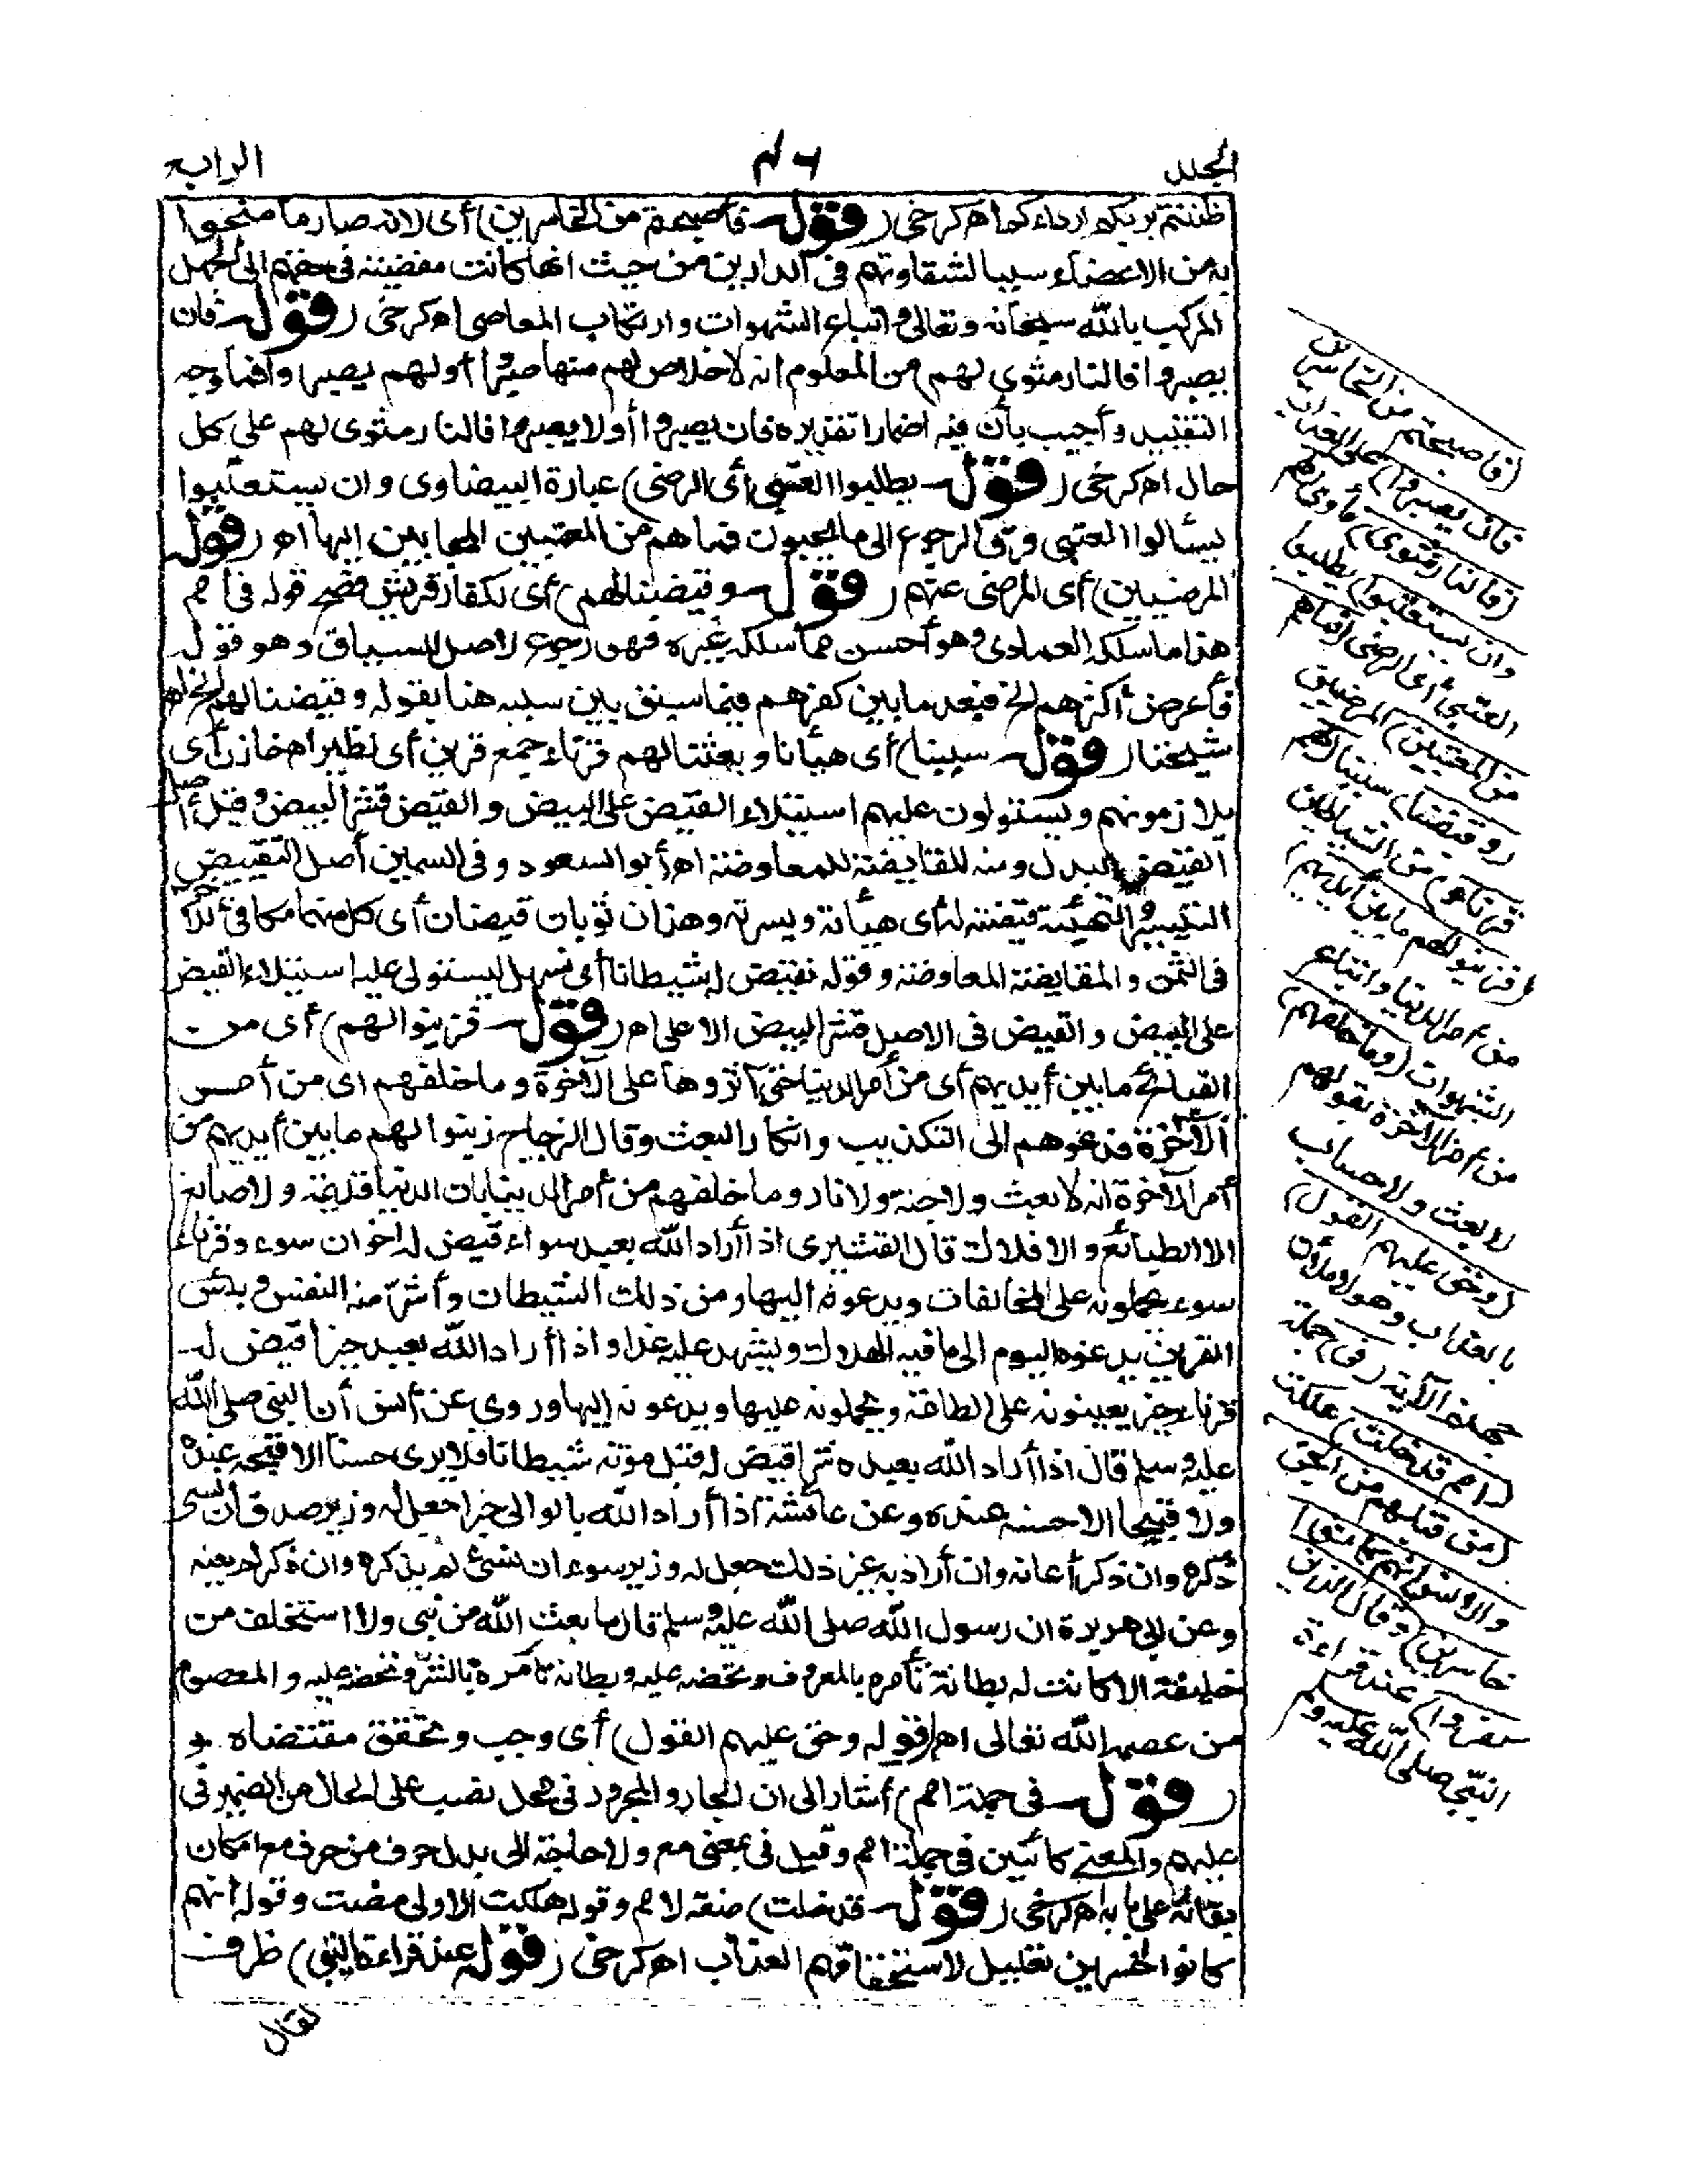 المجلد ٤٦ الرابع
ظننتم بربكم ارداءكم اهـ كرخى (قوله فأصبحتم من الخاسرين) أى لانه صار ما منحوا
به من الاعضاء سببا لشقاوتهم فى الدارين من حيث انها كانت مفضية فى حقهم الى الجهل
المركب بالله سبحانه وتعالى واتباع الشهوات وارتكاب المعاصى اهـ كرخى (قوله فان
يصبروا فالنار مثوى لهم) من المعلوم انه لاخلاص لهم منها صبروا أو لم يصبروا فما وجه
التقييد وأجيب بأن فيه اضمارا تقديره فان يصبروا أو لا يصبروا فالنار مثوى لهم على كل
حال اهـ كرخى (قوله يطلبوا العتبى أى الرضى) عبارة البيضاوى وان يستعتبوا
يسألوا العتبى وهى الرجوع الى ما يحبون فما هم من المعتبين المجابين إليها اهـ (قوله
المرضيين) أى المرضى عنهم (قوله وقيضنا لهم) أى لكفار قريش فصح قوله فى أمم
هذا ما سلكه العمادى وهو أحسن مما سلكه غيره فهو رجوع لاصل السياق وهو قوله
فأعرض أكثرهم الخ فبعد ما بين كفرهم فيما سبق بين سببه هنا بقوله وقيضنا لهم الخ اهـ
شيخنا (قوله سببنا) أى هيأنا وبعثنا لهم قرناء جمع قرين أى نظير اهـ خازن أى
يلازمونهم ويستولون عليهم استيلاء القيض على البيض والقيض قشر البيض وقيل أصل
القيض البدل ومنه المقايضة للمعاوضة اهـ أبو السعود وفى السمين أصل التقييض
التيسير والتهيئة قيضته له أى هيأته ويسرته وهذان ثوبان قيضان أى كل منهما مكافئ للآخر
فى الثمن والمقايضة المعاوضة وقوله نقيض له شيطانا أى نسهل ليستولى عليه استيلاء القيض
على البيض والقيض فى الاصل قشر البيض الاعلى اهـ (قوله فزينوا لهم) أى من
القبائح ما بين أيديهم أى من أمر الدنيا حتى آثروها على الآخرة وما خلفهم أى من أمر
الآخرة فدعوهم الى التكذيب وانكار البعث وقال الزجاج زينوا لهم ما بين أيديهم من
أمر الآخرة انه لا بعث ولا جنة ولا نار وما خلفهم من أمر الدنيا بان الدنيا قديمة ولا صانع
الا الطبائع والافلاك قال القشيرى اذا أراد الله بعبد سواء قيض له اخوان سوء وقرناء
سوء يحملونه على المخالفات ويدعونه اليها ومن ذلك الشيطان وأشر منه النفس وبئس
القرين يدعوه اليوم الى ما فيه الهلاك ويشهد عليه غدا واذا أراد الله بعبد خيرا قيض له
قرناء خير يعينونه على الطاعة ويحملونه عليها ويدعونه إليها وروى عن أنس أن النبى صلى الله
عليه وسلم قال اذا أراد الله بعبده شرا قيض له قبل موته شيطانا فلا يرى حسنا الا قبحه عنده
ولا قبيحا الا حسنه عنده وعن عائشة اذا أراد الله بالوالى خيرا جعل له وزير صدق ان نسى
ذكره وان ذكر أعانه وان أراد به غير ذلك جعل له وزير سوء ان نسى لم يذكره وان ذكر لم يعنه
وعن أبى هريرة ان رسول الله صلى الله عليه وسلم قال ما بعث الله من نبى ولا استخلف من
خليفة الا كانت له بطانة تأمره بالمعروف وتحضه عليه وبطانة تأمره بالشر وتحضه عليه والمعصوم
من عصمه الله تعالى اهـ (قوله وحق عليهم القول) أى وجب وتحقق مقتضاه
(قوله فى جملة امم) أشار الى ان الجار والمجرور فى محل نصب على الحال من الضمير فى
عليهم والمعنى كائنين فى جملة امم وقيل فى بمعنى مع ولا حاجة الى بدل حرف من حرف مع امكان
بقائه على بابه اهـ كرخى (قوله قد خلت) صفة لامم وقوله هلكت الاولى مضت وقوله انهم
كانوا خاسرين تعليل لاستحقاقهم العذاب اهـ كرخى (قوله عند قراءة النبى) ظرف
لقال
(فأصبحتم من الخاسرين
فان يصبروا) على العذاب
(فالنار مثوى) مأوى لهم
وان يستعتبوا) يطلبوا
العتبى أى الرضى (فما هم
من المعتبين) المرضيين
(وقيضنا) سببنا (لهم
قرناء) من الشياطين
(فزينوا لهم ما بين أيديهم)
من أمر الدنيا واتباع
الشهوات (وما خلفهم)
من أمر الآخرة بقولهم
لا بعث ولا حساب
(وحق عليهم القول)
بالعذاب وهو لاملأن
جهنم الآية (فى) جملة
(امم قد خلت) هلكت
(من قبلهم من الجن
والانس انهم كانوا
خاسرين) وقال الذين
كفروا) عند قراءة
النبى صلى الله عليه وسلم